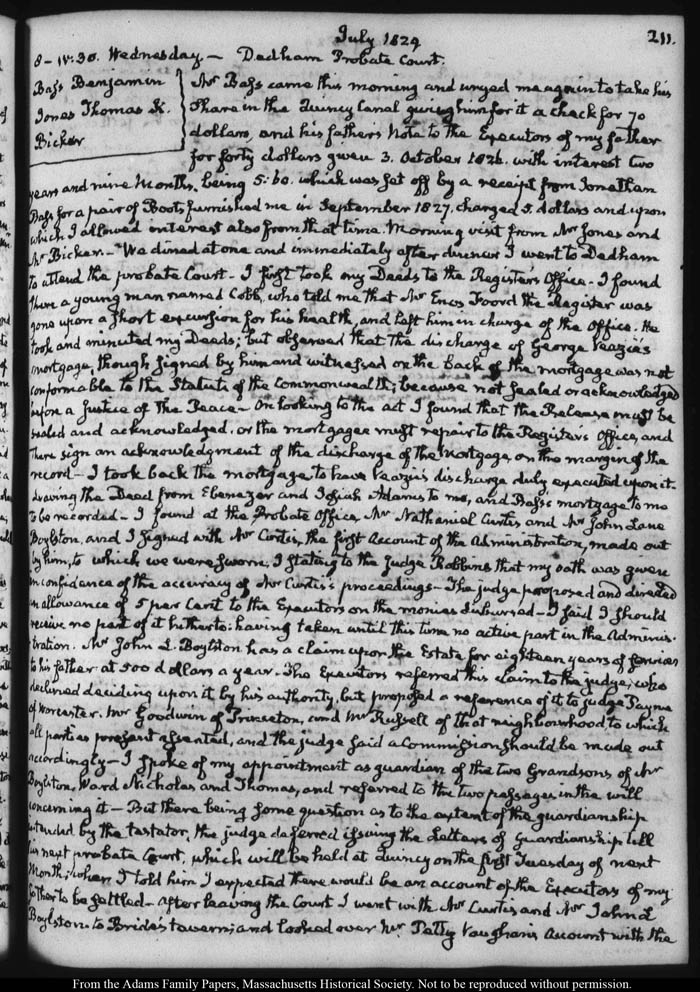 July 1829
211.
8–IV:30. Wednesday.— Dedham Probate Court.
Bass Benjamin
Jones Thomas K.
Bicker
Mr Bass came this morning and urged me again to take his
Share in the Quincy Canal giving him for it a check for 70
dollars, and his father's Note to the Executors of my father
for forty dollars given 3. October 1826. with interest two
years and nine Months, being 5:60. which was set off by a receipt from Jonathan
Bass for a pair of Boots furnished me in September 1827. charged 5. dollars and upon
which I allowed interest also from that time. Morning visit from Mr Jones and
Mr Bicker.— We dined at one and immediately after dinner I went to Dedham
to attend the probate Court— I first took my Deeds to the Register's Office— I found
there a young man named Cobb, who told me that Mr Enos Foord the Register was
gone upon a short excursion for his health, and left him in charge of the Office. He
took and minuted my Deeds; but observed that the discharge of George Veazie's
mortgage, though signed by him and witnessed on the back of the mortgage was not
conformable to the Statute of the Commonwealth; because not sealed or acknowledged
before a Justice of The Peace— On looking to the act I found that the Release must be
sealed and acknowledged, or the mortgagee must repair to the Register's Office, and
there sign an acknowledgment of the discharge of the Mortgage, on the margin of the
record— I took back the mortgage, to have Veazie's discharge duly executed upon it.
Leaving the Deed from Ebenezer and Josiah Adams to me, and Bass's mortgage to me
to be recorded— I found at the Probate Office, Mr Nathaniel Curtis and Mr John Lane
Boylston, and I signed with Mr Curtis, the first Account of the Administration, made out
by him, to which we were sworn, I stating to the Judge Robbins that my oath was given
in confidence of the accuracy of Mr Curtis's proceedings— The judge proposed and directed
an allowance of 5 per Cent to the Executors on the monies disbursed— I said I should
receive no part of it hitherto: having taken until this time no active part in the Adminis-
tration. Mr John L. Boylston has a claim upon the Estate for eighteen years of services
to his father at 500 dollars a year. The Executors referred this claim to the judge, who
declined deciding upon it by his authority, but proposed a reference of it to judge Payne
of Worcester. Mr Goodwin of Princeton, and Mr Russell of that neighbourhood, to which
all parties present assented, and the judge said a Commission should be made out
accordingly— I spoke of my appointment as guardian of the two Grandsons of Mr
Boylston, Ward Nicholas and Thomas, and referred to the two passages in the will
concerning it— But there being some question as to the extent of the guardianship
intended by the testator, the judge deferred issuing the Letters of Guardianship till
his next probate Court, which will be held at Quincy on the first Tuesday of next
Month; when I told him I expected there would be an account of the Executors of my
father to be settled— After leaving the Court I went with Mr Curtis and Mr John L
Boylston to Bride's tavern; and looked over Mr Petty Vaughan's Account with the
From the Adams Family Papers, Massachusetts Historical Society. Not to be reproduced without permission.